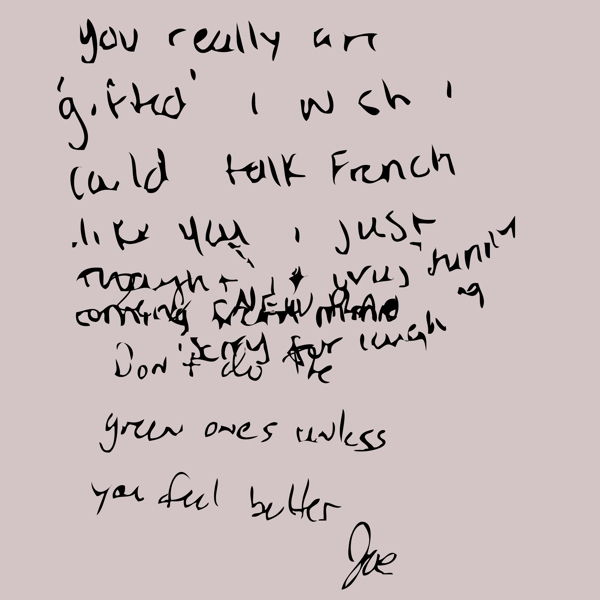 you really are
'gifted' I wish I
could talk French
like you I just
thought it was funny
coming NEW
sorry for laughing
Don't do the
green ones unless
you feel better
Joe